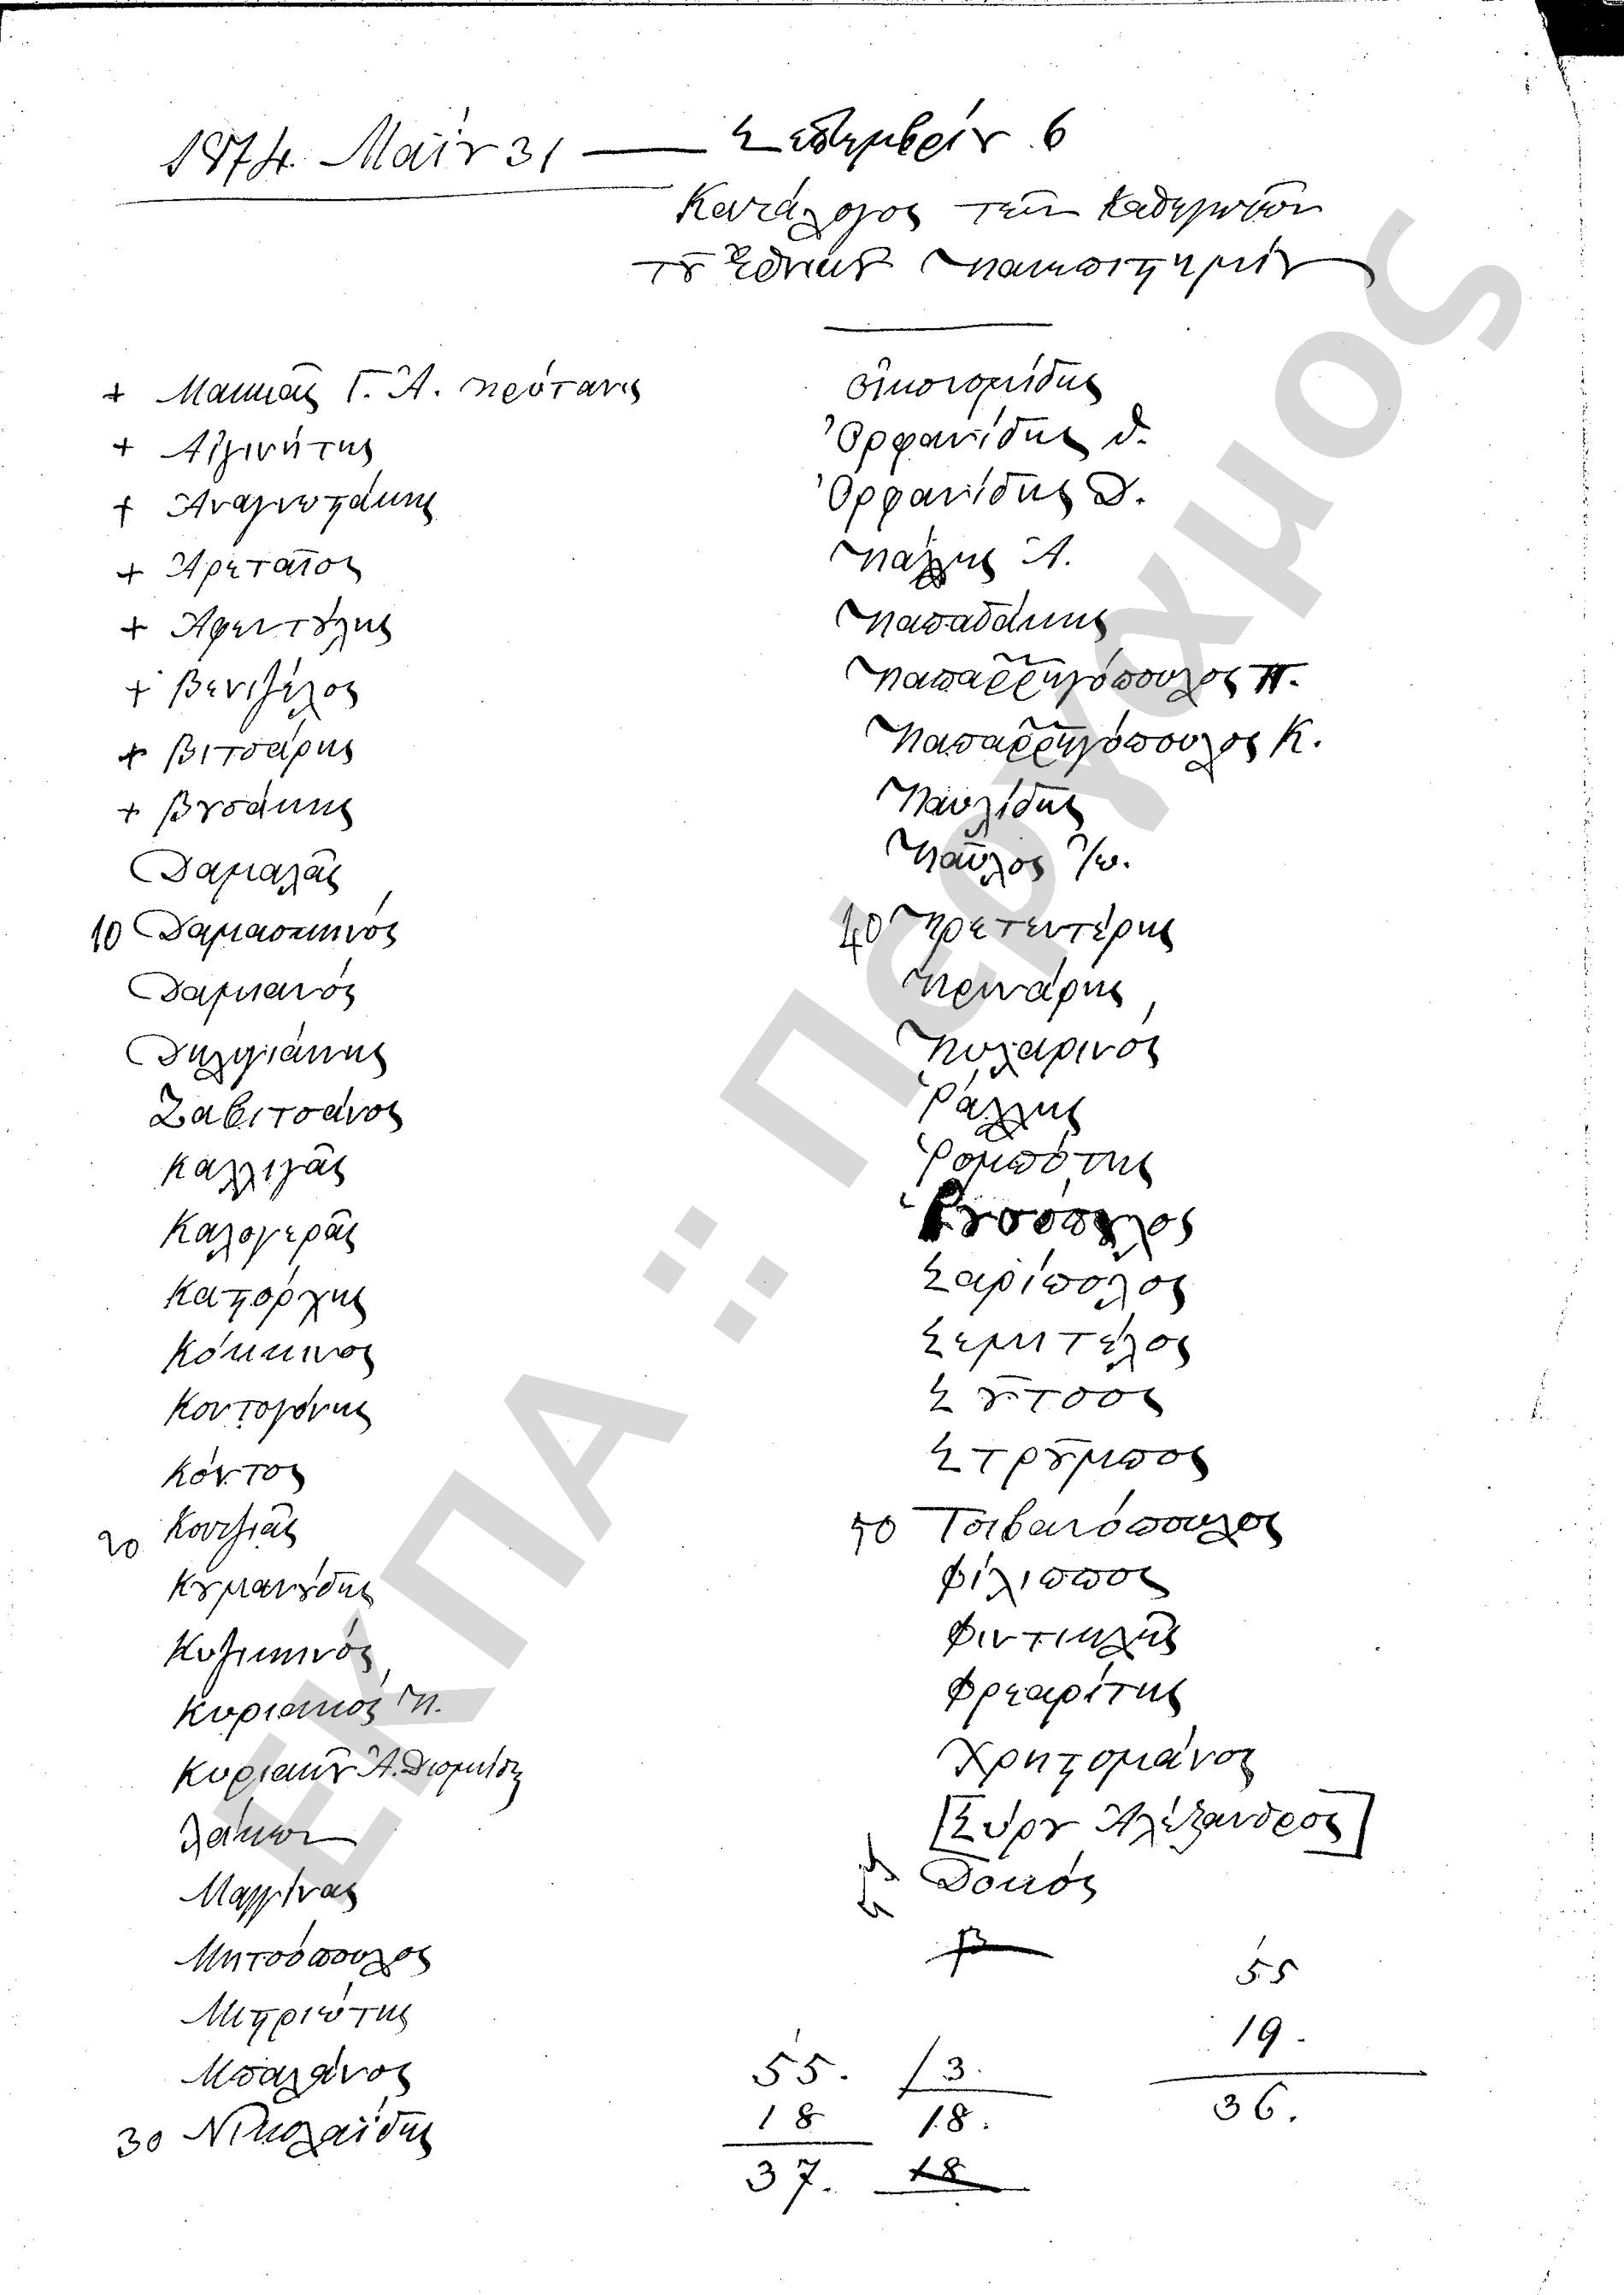 1874 Μαΐου 31 — Σεπτεμβρίου 6
Κατάλογος τῶν Καθηγητῶν
τοῦ Ἐθνικοῦ Πανεπιστημίου
+ Μακκᾶς Γ. Ἀ. Πρύτανις
+ Αἰγινήτης
+ Ἀναγνωστάκης
+ Ἀρεταῖος
+ Ἀφεντούλης
+ Βενιζέλος
+ Βιτσάρης
+ Βουσάκης
Δαμαλᾶς
10 Δαμασκηνός
Δαμιανός
Δηλιγιάννης
Ζαβιτσάνος
Καλλιγᾶς
Καλογερᾶς
Καστόρχης
Κόκκινος
Κοντογόνης
Κόντος
20 Κουζιᾶς
Κουμανούδης
Κυζικηνός
Κυριακός Π.
Κυριακοῦ Ἀ. Διομήδης
Λάκων
Μαγγίνας
Μητσόπουλος
Μιστριώτης
Μπαλάνος
30 Νικολαΐδης
Οἰκονομίδης
Ὀρφανίδης Θ.
Ὀρφανίδης Δ.
Πάλλης Ἀ.
Παπαδάκης
Παπαῤῥηγόπουλος Π.
Παπαῤῥηγόπουλος Κ.
Παυλίδης
Παῦλος Ἰω.
40 Πρετεντέρης
Πρινάρης
Πυλαρινός
Ῥάλλης
Ῥομπότης
Ῥουσόπουλος
Σαρίπολος
Σεμιτέλος
Σοῦτσος
Στροῦμπος
50 Τσιβανόπουλος
Φίλιππος
Φιντικλῆς
Φρεαρίτης
Χρηστομάνος
[Σύρου Ἀλέξανδρος]
Δοκός
55
19.
36.
55. / 3.
18 18.
37. 18
ΕΚΠΑ :: Πέργαμος